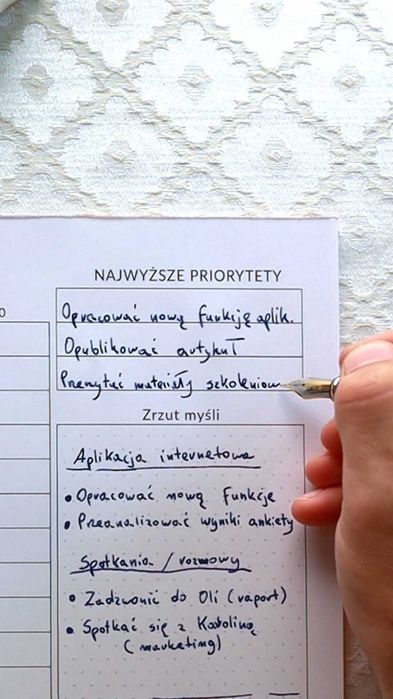 0
NAJWYŻSZE PRIORYTETY
Opracować nową funkcję aplik.
Opublikować artykuł
materiały szkoleniow
Zrzut myśli
Aplikacja internetowa
• Opracować nową funkcję
• Przeanalizować wyniki ankiety
Spotkania / rozmowy
• Zadzwonić do Oli (raport)
• Spotkać się z Karoliną
(marketing)